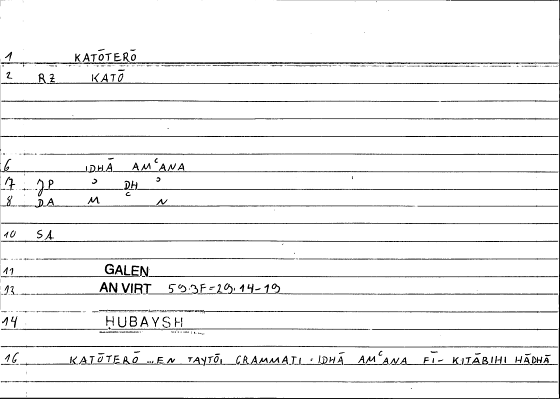 1 KATŌTERŌ
2 RZ KATŌ
6 IDHĀ AMʿANA
7 JP ʾ DH ʾ
8 DA M ʿ N
10 SA
11 GALEN
13 AN VIRT 593F=29.14-19
14 ḤUBAYSH
16 KATŌTERŌ ... EN TAYTŌI GRAMMATI · IDHĀ AMʿANA FĪ- KITĀBIHI HĀDHĀ